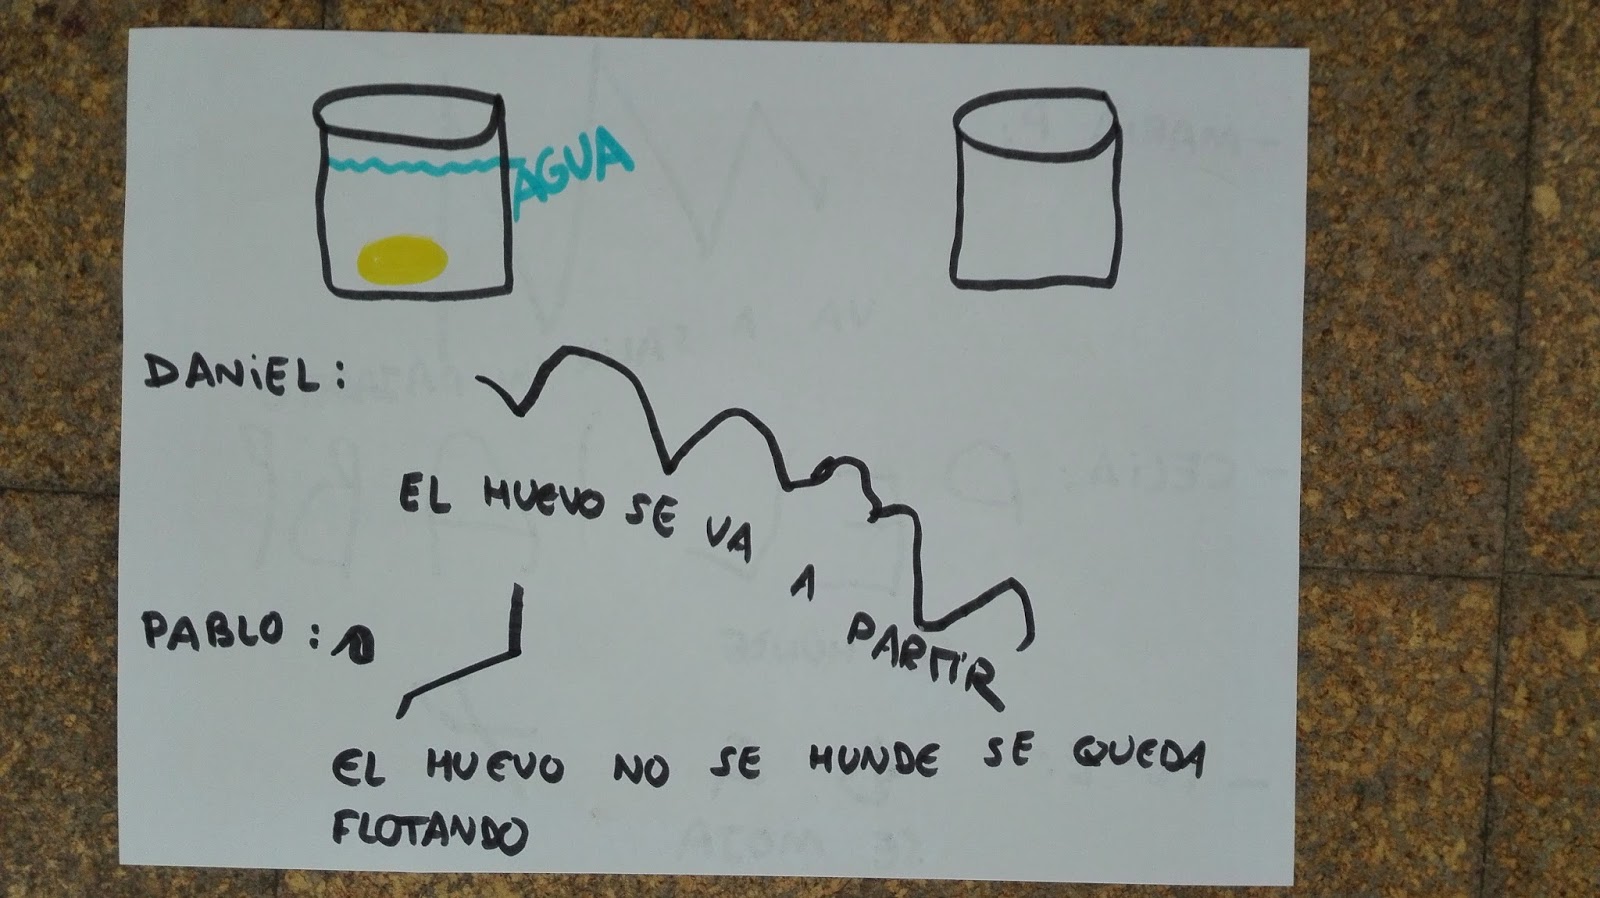 AGUA
DANiEL:
EL HUEVO SE VA A PARTIR
PABLO:
EL HUEVO NO SE HUNDE SE QUEDA
FLOTANDO